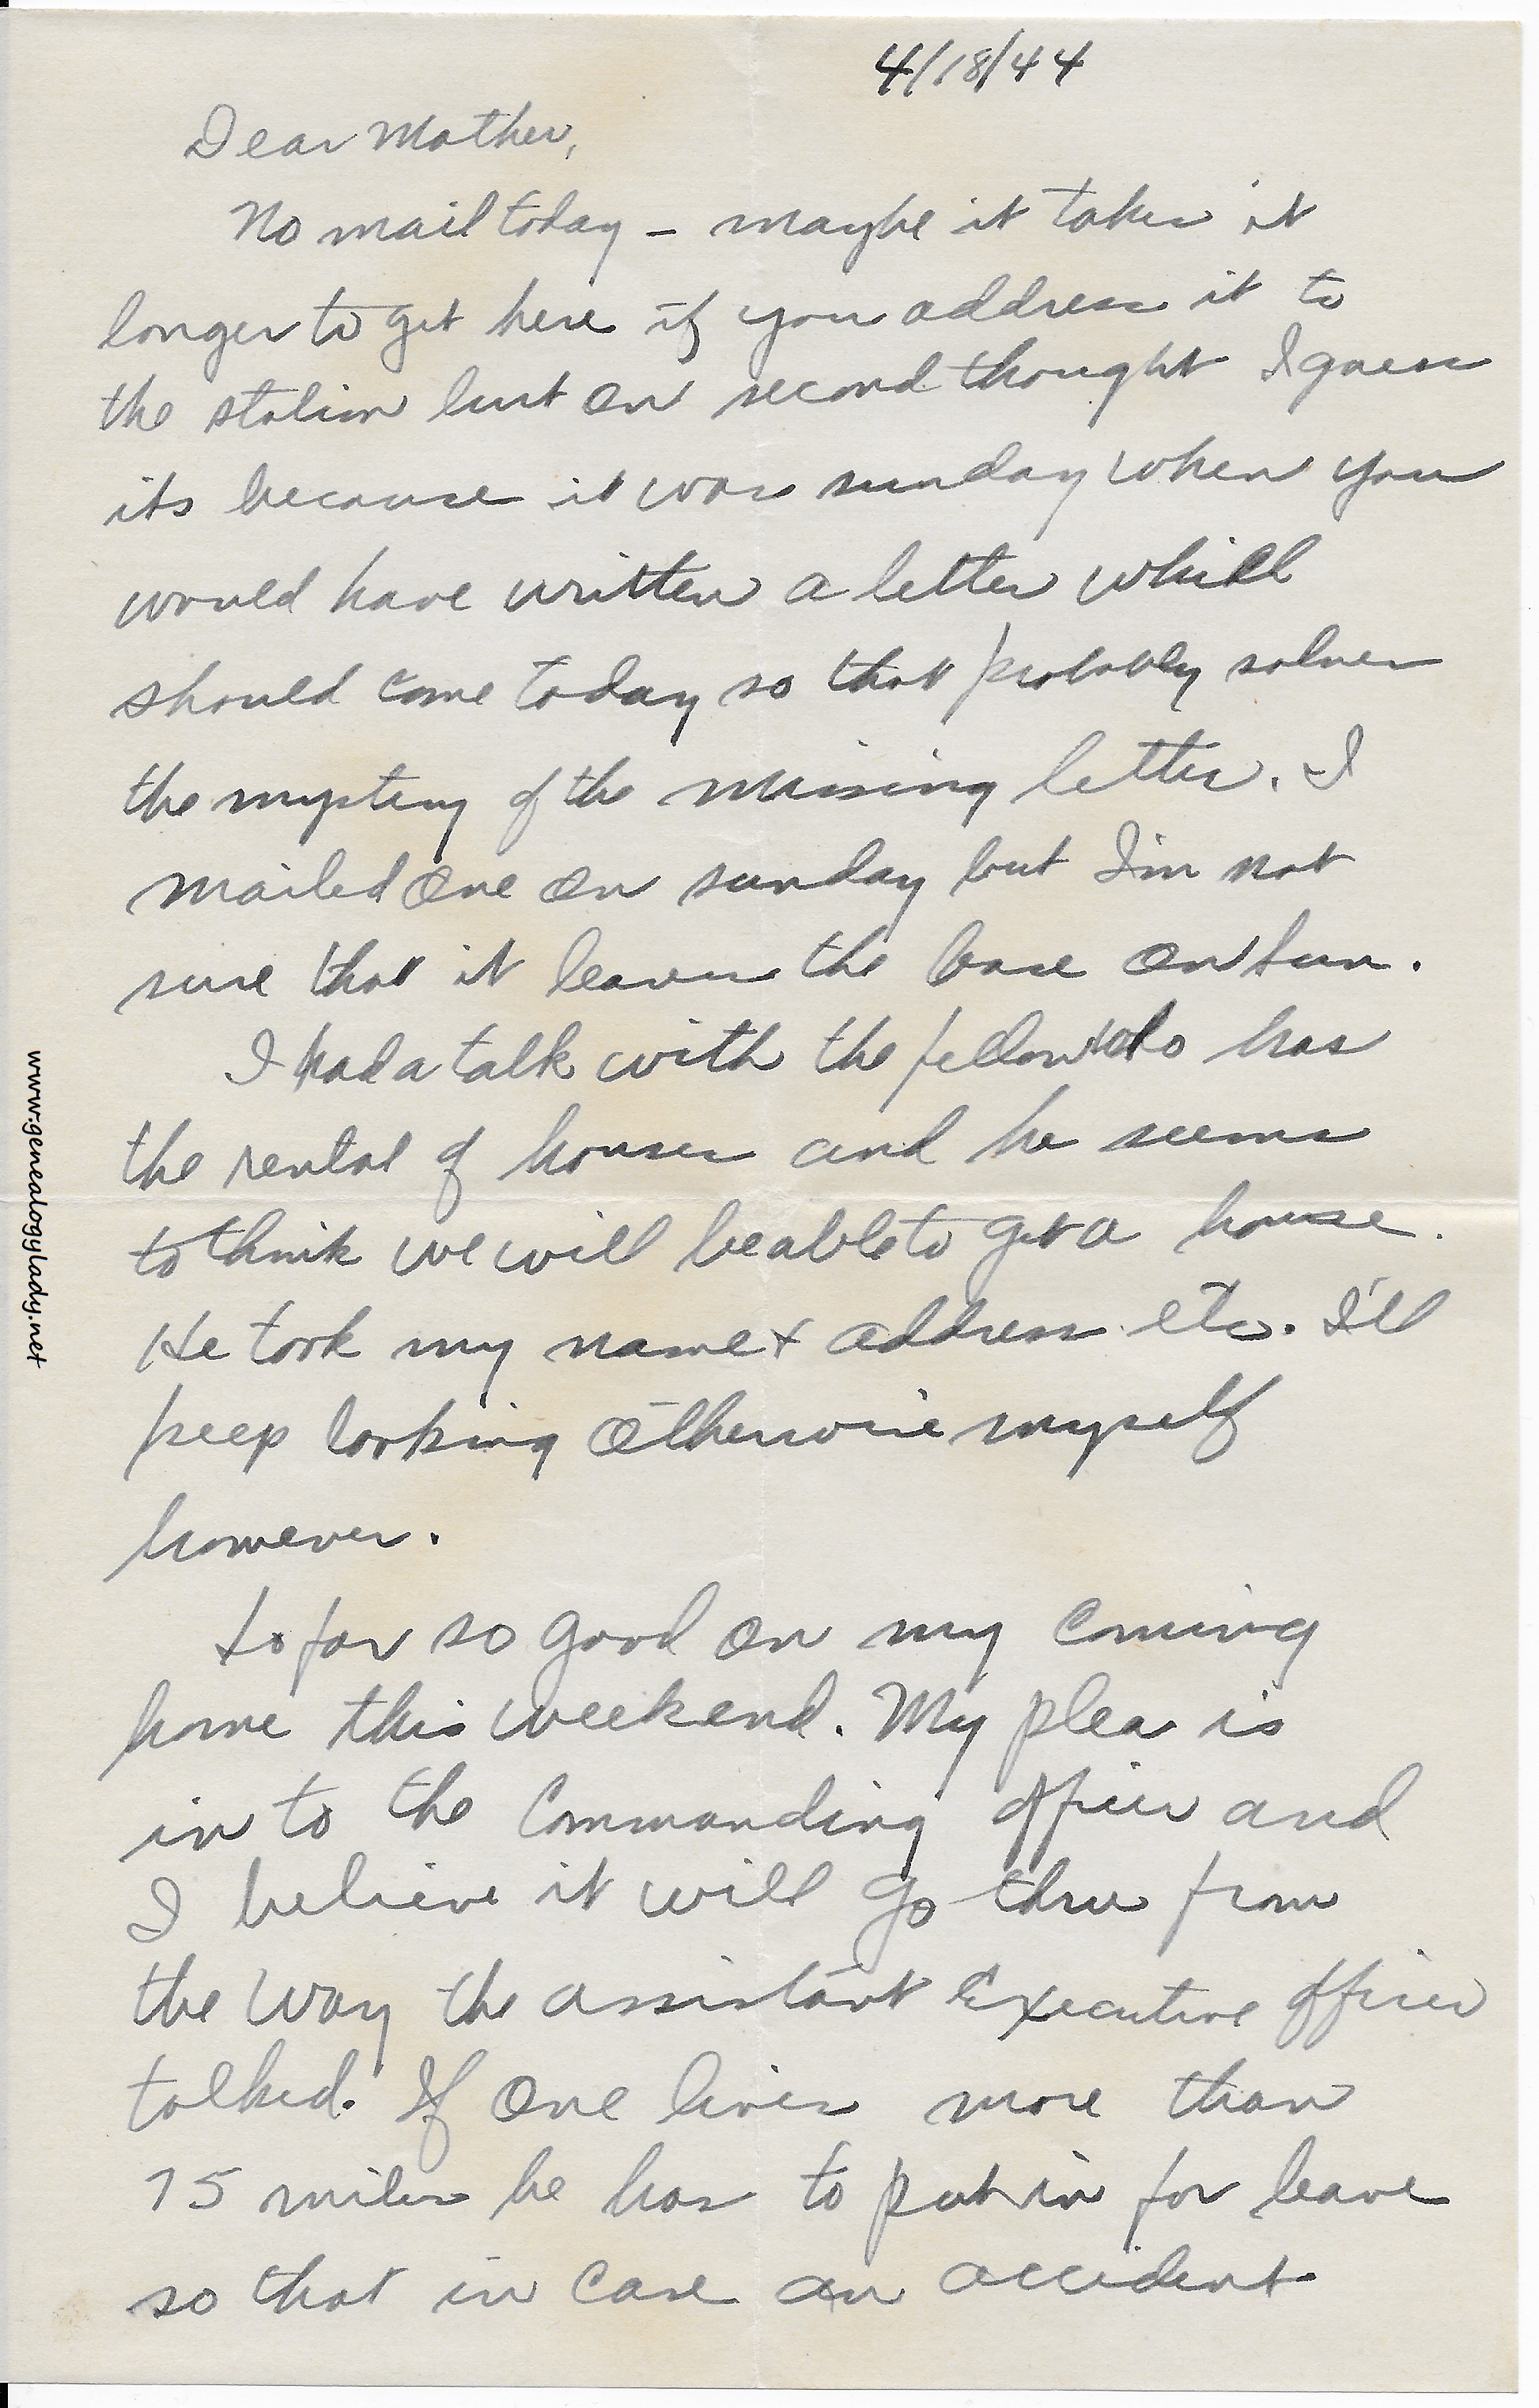 4/18/44
Dear Mother,
No mail today – maybe it takes it
longer to get here if you address it to
the station but on second thought I guess
its because it was sunday when you
would have written a letter which
should come today so that probably solves
the mystery of the missing letter. I
mailed one on sunday but I'm not
sure that it leaves the base on Sun.
I had a talk with the fellow who has
the rental of houses and he seems
to think we will be able to get a house.
He took my name + address etc. I'll
keep looking otherwise myself
however.
So far so good on my coming
home this weekend. My plea is
in to the Commanding officer and
I believe it will go thru from
the way the assistant Executive officer
talked. If one lives more than
75 miles he has to put in for leave
so that in case an accident
www.genealogylady.net